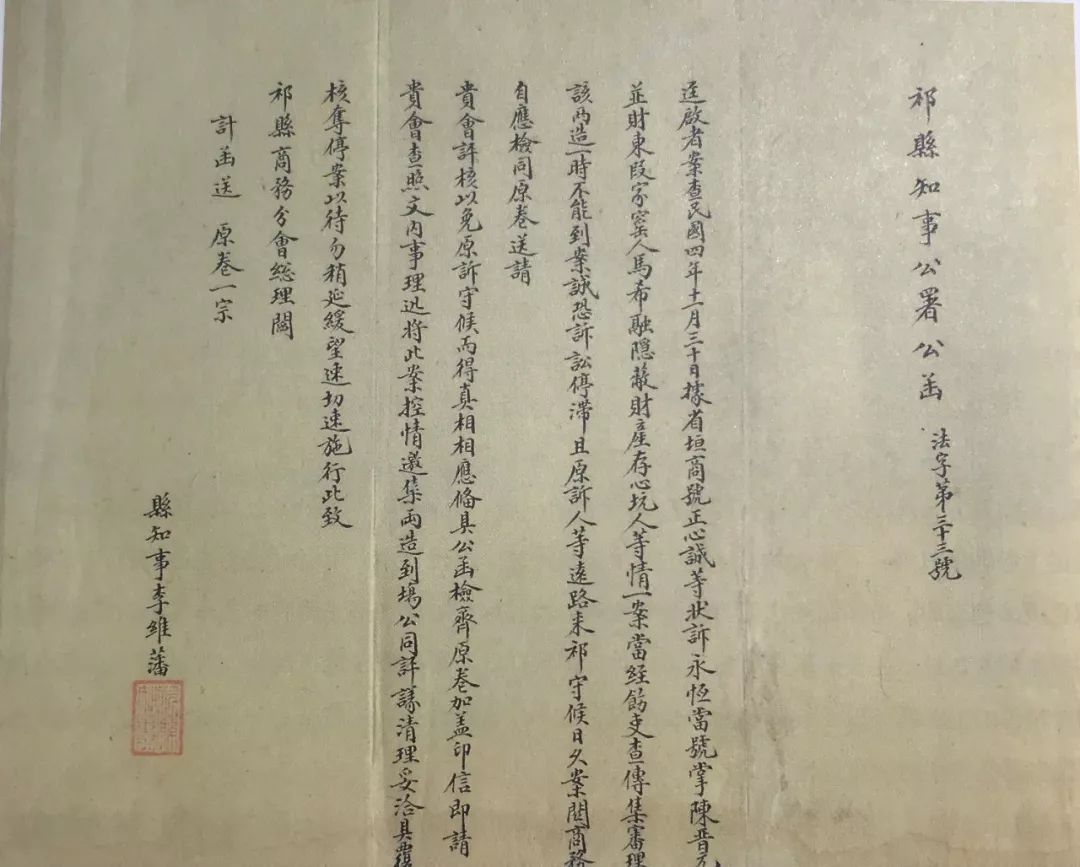 祁縣知事公署公函 法字第三十三號
迳啟者案查民國四年十一月三十日據省垣商號正心誠等狀訴永恆當號掌陳晋元
並財東段家窑人馬希融隱蔽財產存心坑人等情一案當經飭吏查傳集審理
該两造一時不能到案誠恐訴訟停滯且原訴人等遠路来祁守候日久案関商務
自應檢同原卷送請
貴會評核以免原訴守候而得真相相應備具公函檢齊原卷加盖印信即請
貴會查照文内事理迅将此案控情邀集両造到場公同評議清理妥洽具覆
核奪停案以待勿稍延緩望速切速施行此致
祁縣商務分會総理閻
計函送 原卷一宗
縣知事李維藩